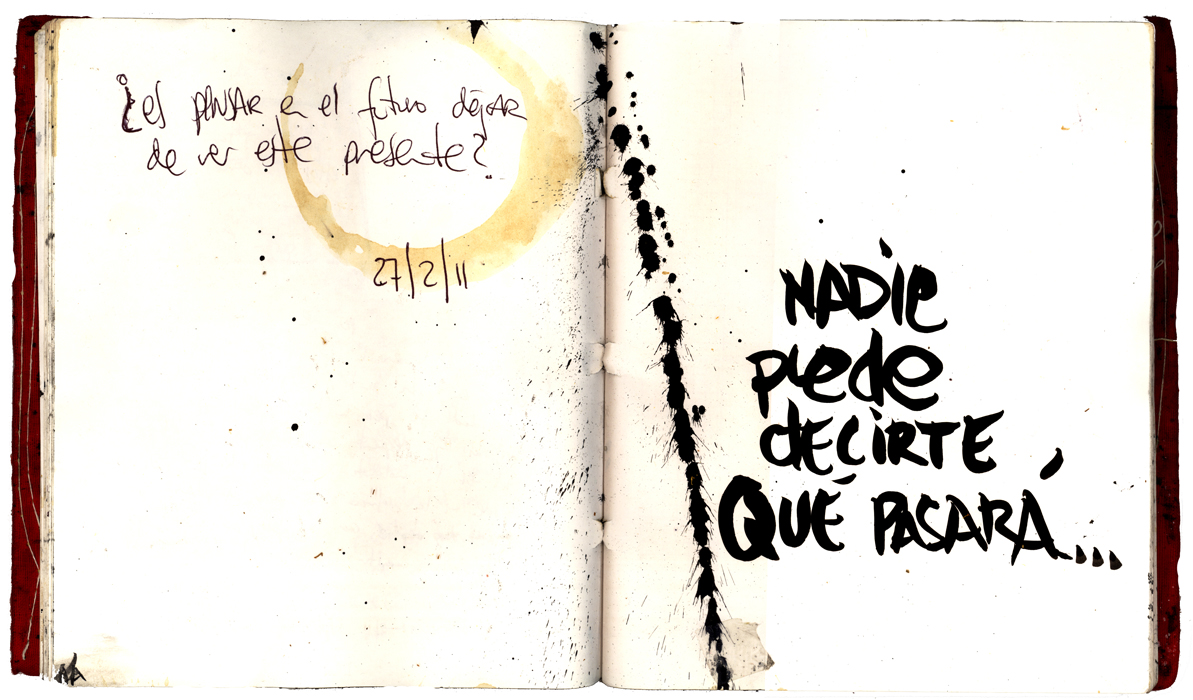 ¿es PENSAR en el futuro dejAR
de ver este presente?
27/2/11
NADIe
puede
decirte
QUÉ PASARÁ...